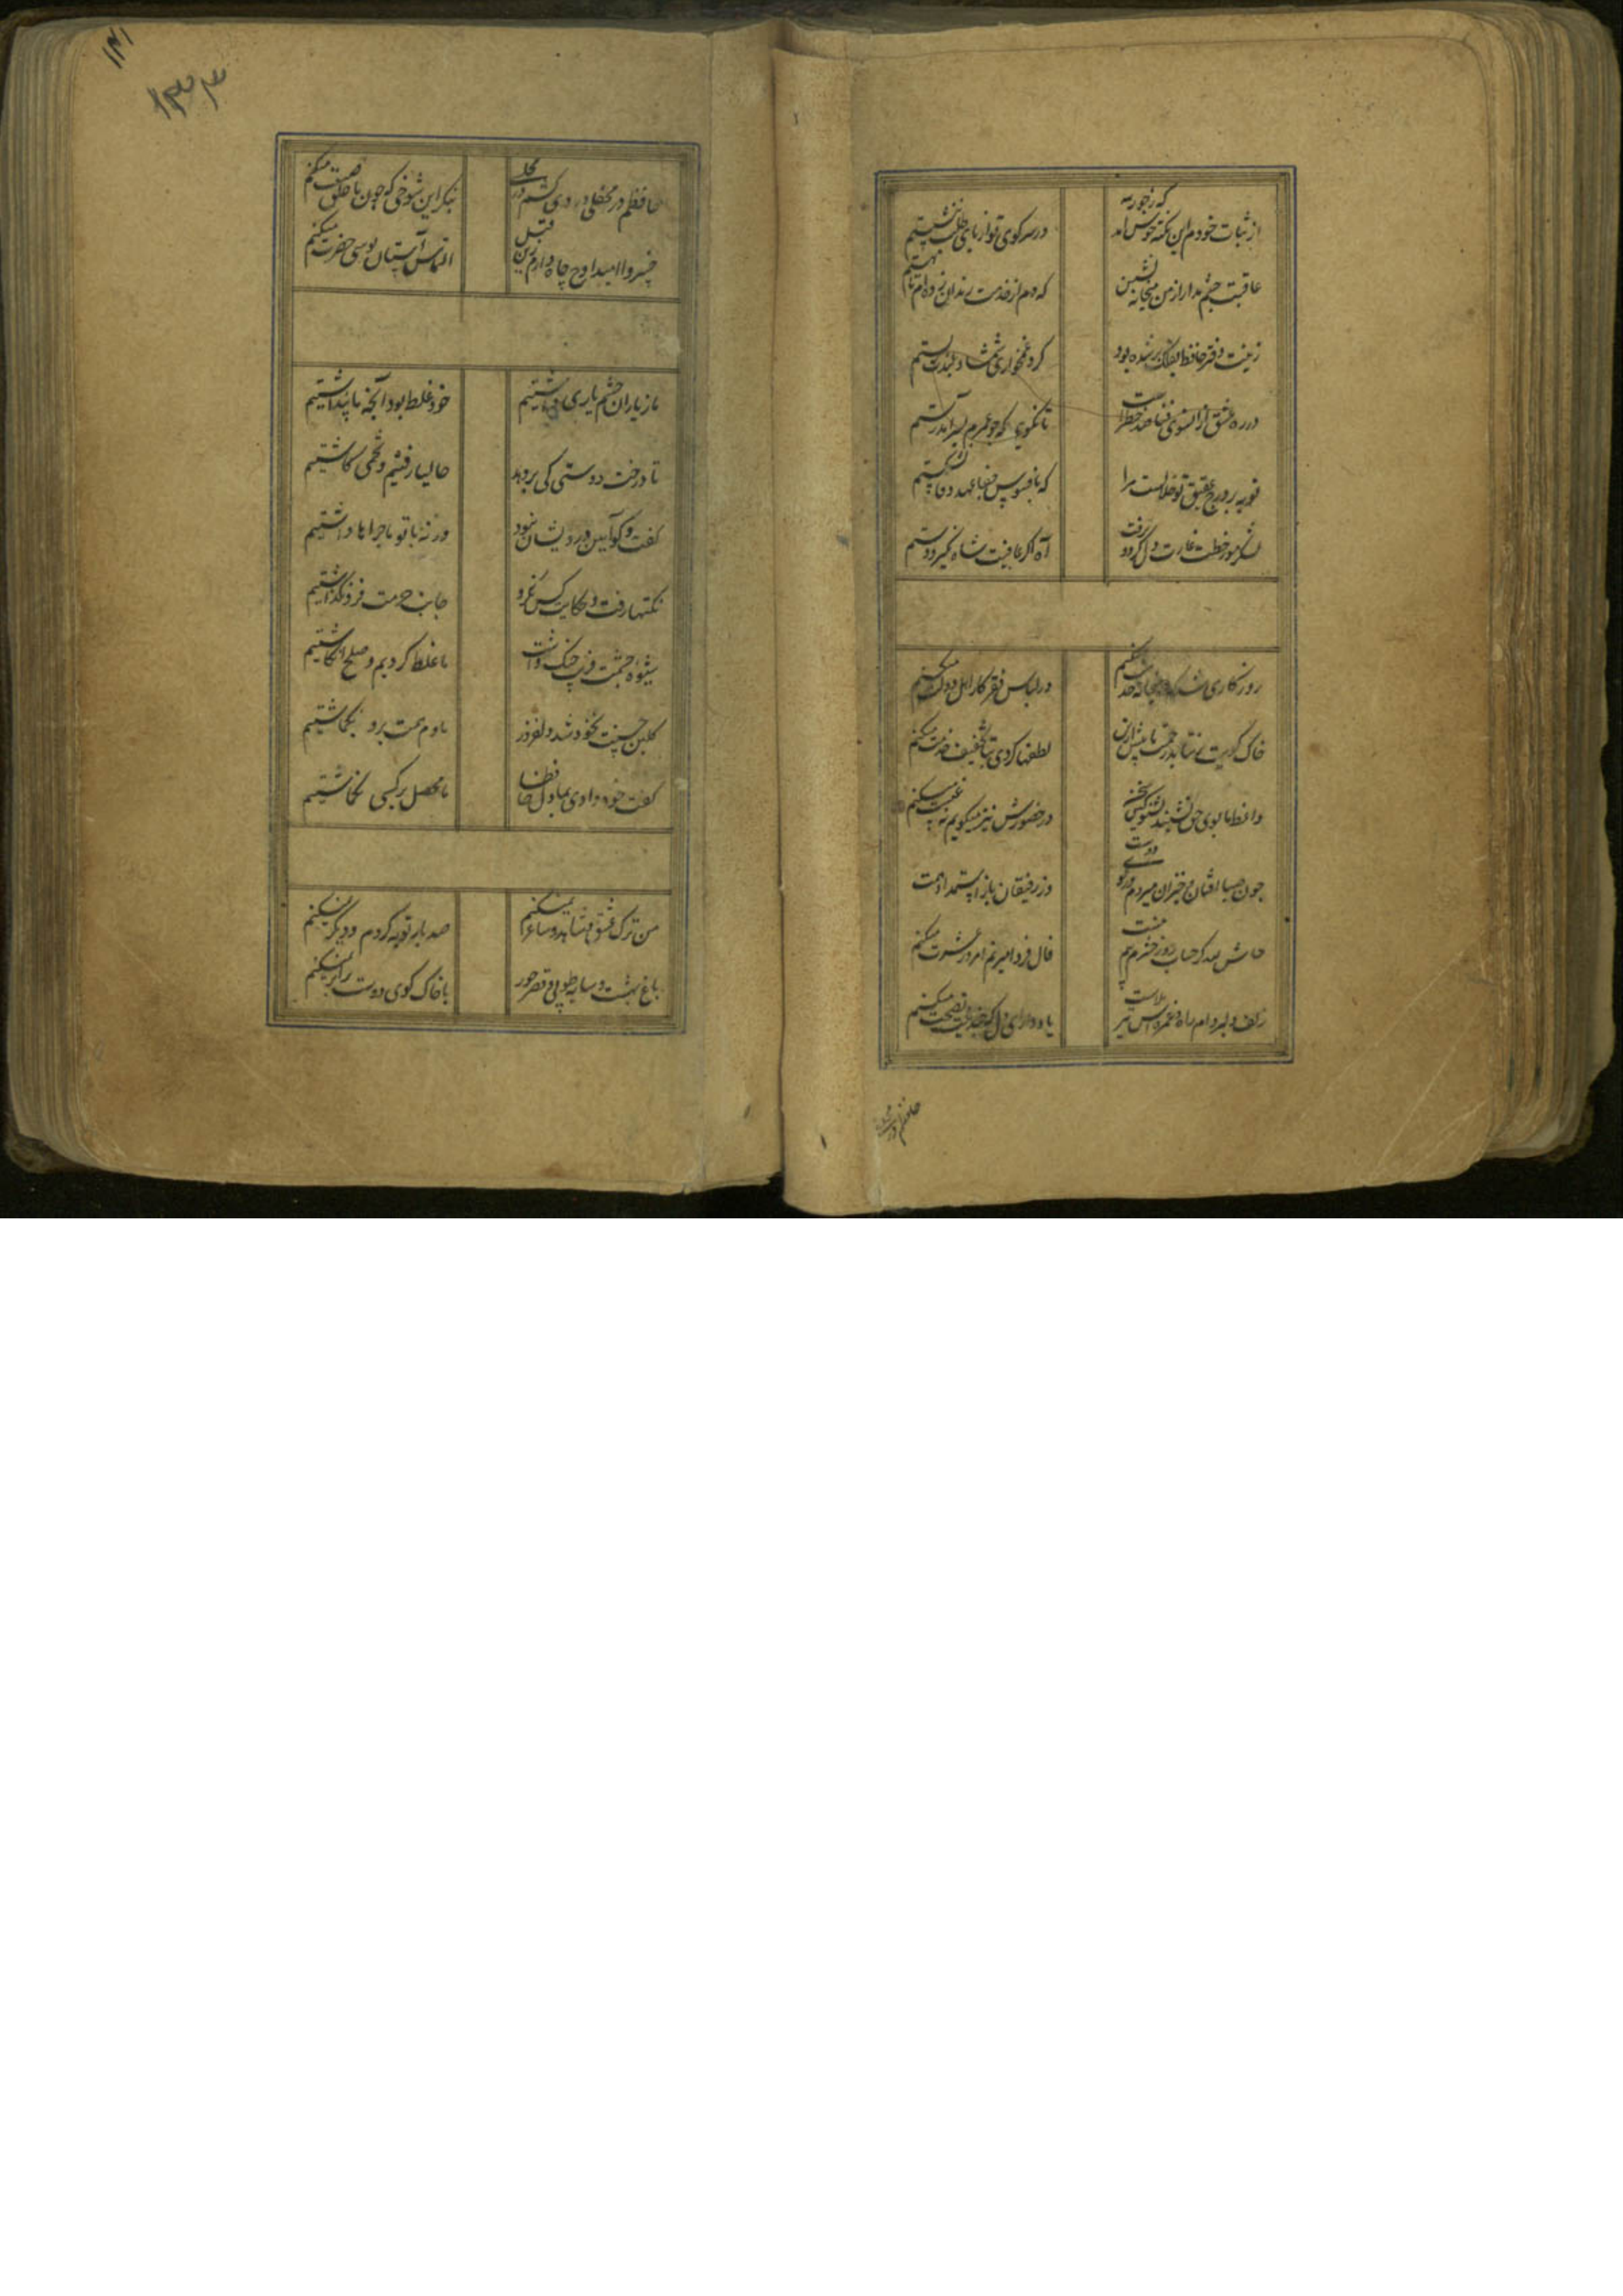 از ثبات خودم این نکته خوش آمد که بجور
در سر کوی تو از پای طلب ننشستیم
عاقبت چشم مدار از من میخانه نشین
که دم از خدمت رندان زده ام تا هستیم
در ره عشق از آنسوی فنا صد خطر است
تا نگویی که چو عمرم بسر آمد رستم
که بافسوس و جفا عهد وفا بشکستم
لشکر مور خطت غارت دل کرد و برفت
آه اگر عاقبت شاه نگیرد دستم
روزگاری شد که در میخانه خدمت میکنم
در لباس فقر کار اهل دولت میکنم
خاک کویت بر نتابد زحمت ما بیش ازین
لطفها کردی بتا تخفیف خدمت میکنم
واعظ ما بوی حق نشنید بشنو کین سخن
در حضورش نیز میگویم نه غیبت میکنم
چون صبا افتان و خیزان میروم تا کوی دوست
وز رفیقان باز استمداد همت
حاش لله کز حساب روز حشرم بیم نیست
فال فردا میزنم امروز عشرت میکنم
زلف دلبر دام راه و غمزه اش تیر بلاست
یاد دار ای دل که چندینت نصیحت میکنم
حافظم در
۱۴۱
۱۳۳
حافظم در محفلی دردی کشم در محفلی
بنگر این شوخی که چون با خلق صنعت میکنم
خسروا امید اوج جاه دارم زین قبل
التماس آستان بوسی حضرت میکنم
ما ز یاران چشم یاری داشتیم
خود غلط بود آنچه ما پنداشتیم
تا درخت دوستی کی بر دهد
حالیا رفتیم و تخمی کاشتیم
گفت و گو آیین درویشان نبود
ور نه با تو ماجراها داشتیم
نکتها رفت و حکایت کس نکرد
جانب حرمت فرو نگذاشتیم
شیوه چشمت فریب جنگ داشت
ما غلط کردیم و صلح انگاشتیم
گلبن حسنت نخود شد دلفروز
ما دم همت برو بگماشتیم
گفت خود دادی بما دل حافظا
ما محصل بر کسی نگماشتیم
من ترک عشق و شاهد و ساغر نمیکنم
صد بار توبه کردم و دیگر نمیکنم
باغ بهشت و سایه طوبی و قصر حور
با خاک کوی دوست برابر نمیکنم